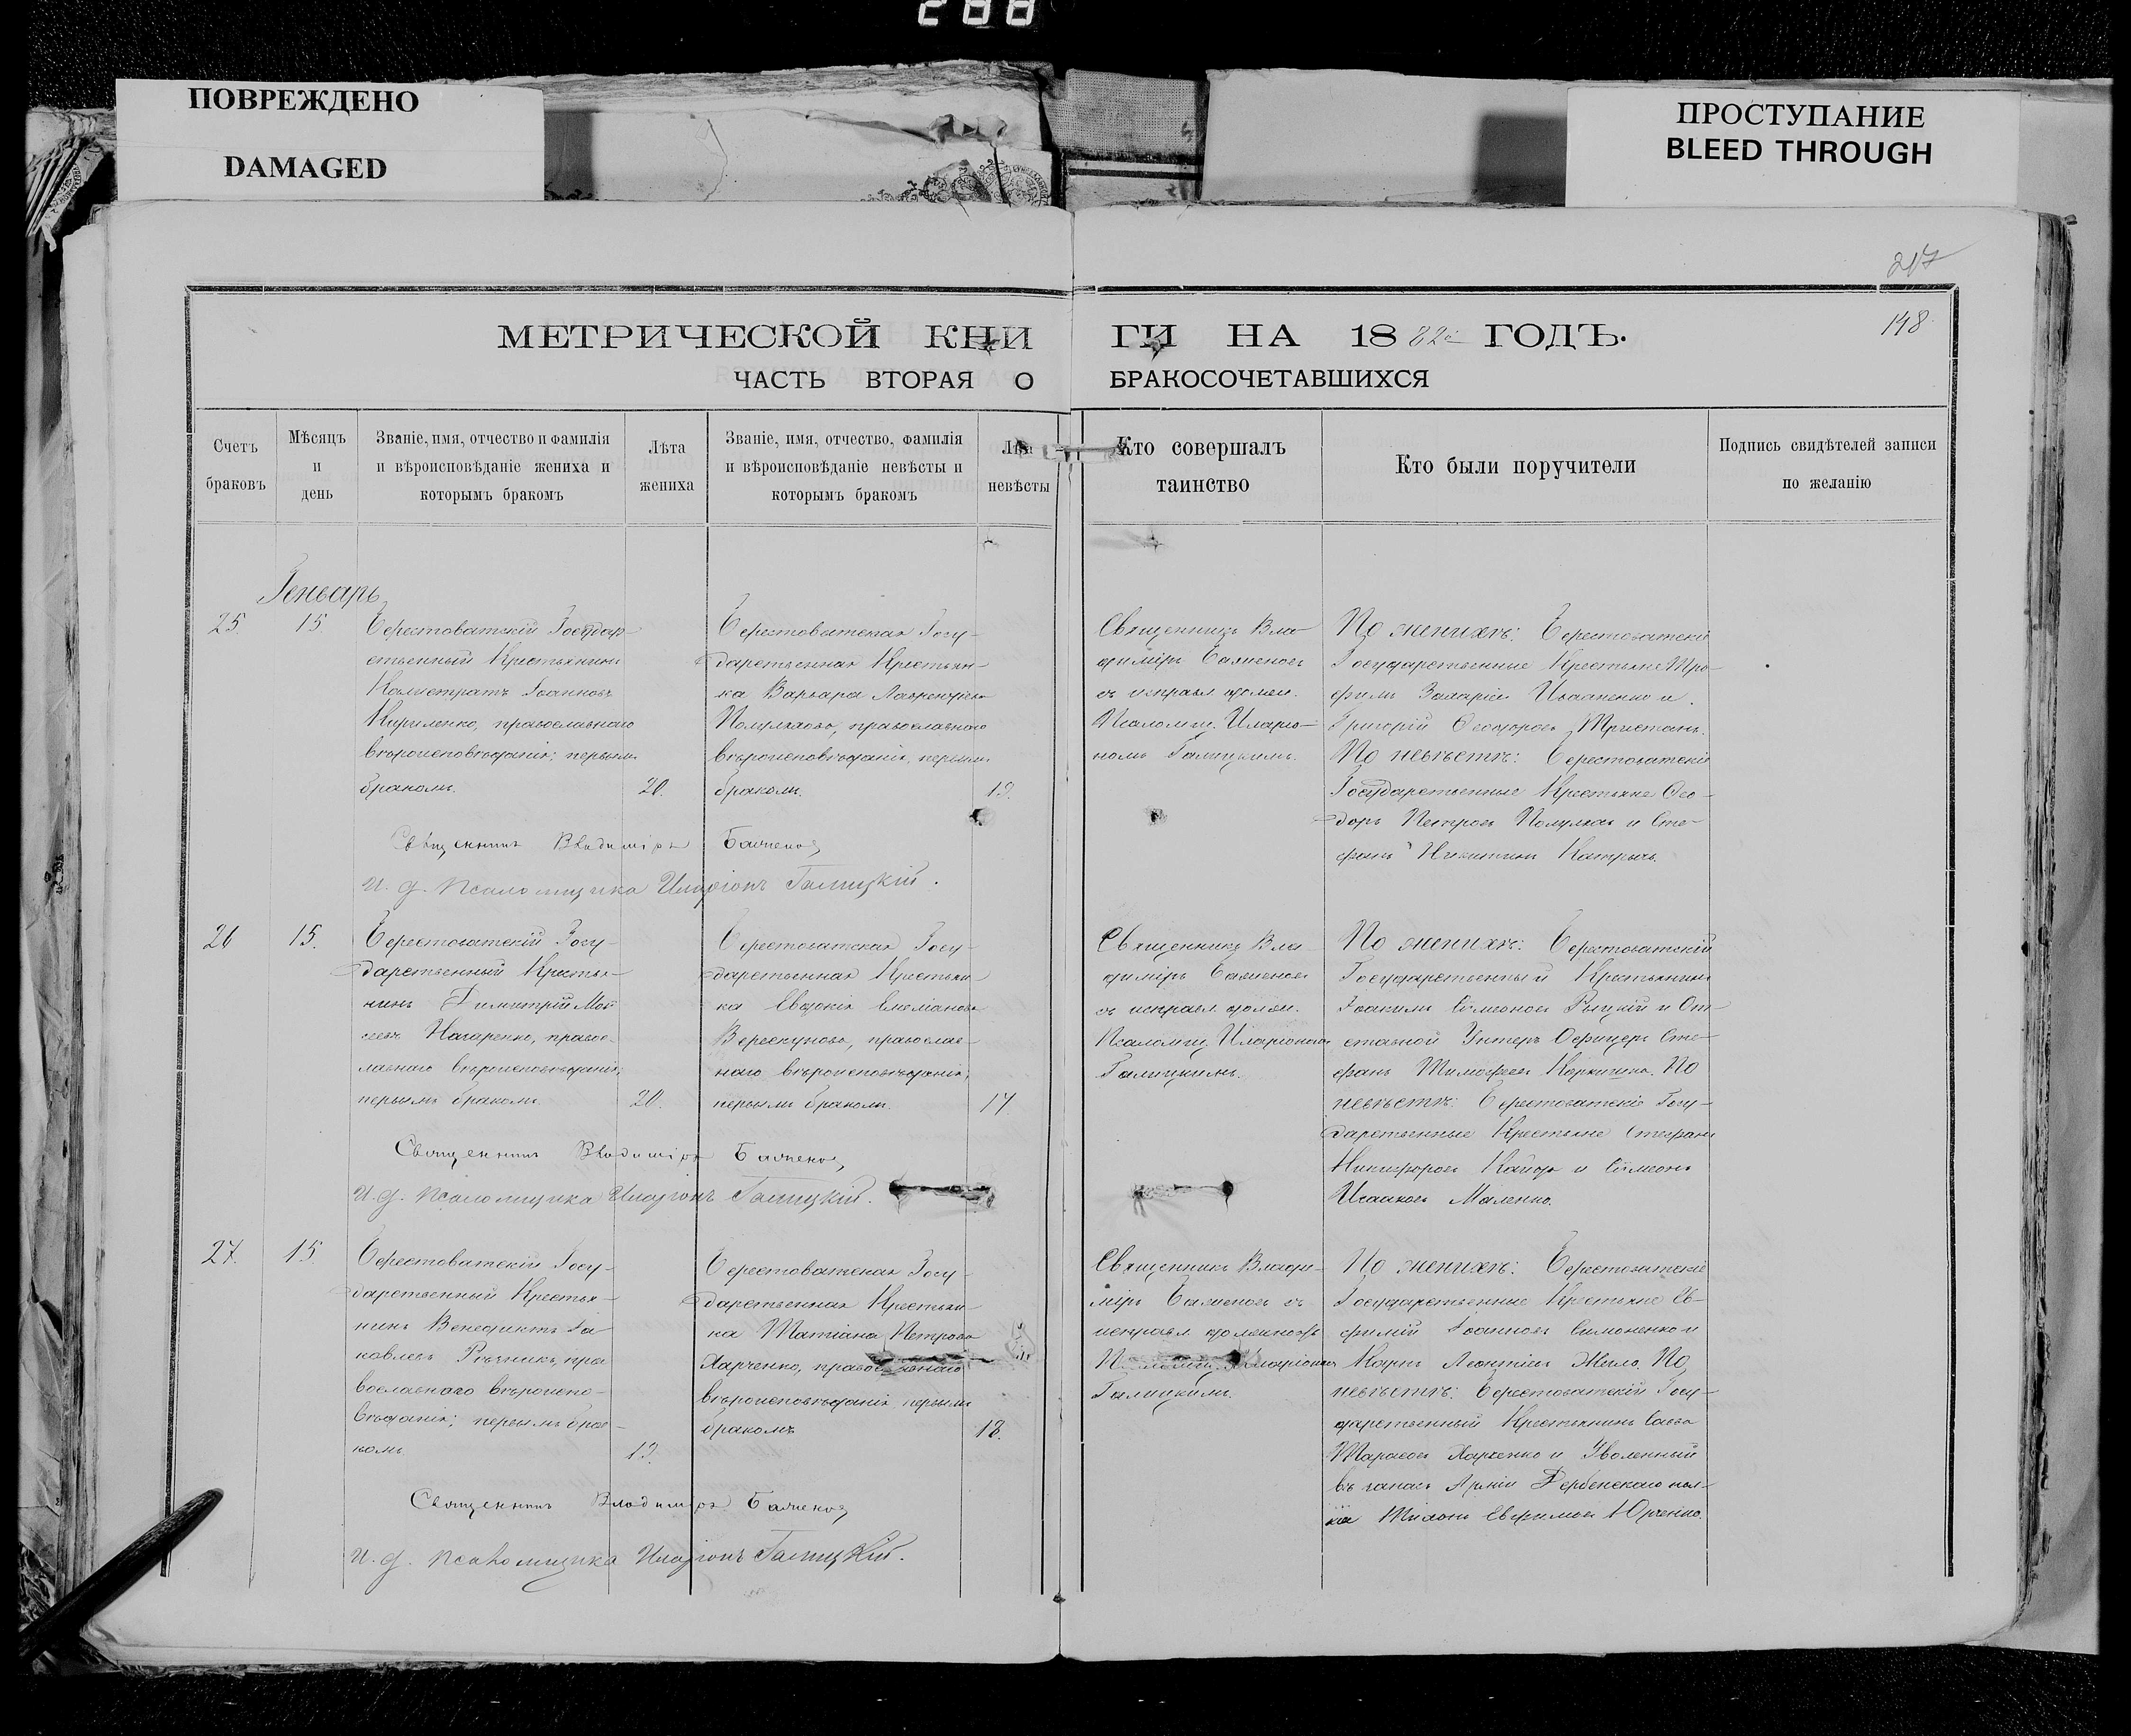 288
ПОВРЕЖДЕНО
DAMAGED
ПРОСТУПАНИЕ
BLEED THROUGH
217
148
МЕТРИЧЕСКОЙ КНИ
ГИ НА 1882й ГОДЪ.
ЧАСТЬ ВТОРАЯ О
БРАКОСОЧЕТАВШИХСЯ
Счетъ
браковъ
Мѣсяцъ
и
день
Званіе, имя, отчество и фамилія
и вѣроисповѣданіе жениха и
которымъ бракомъ
Лѣта
жениха
Званіе, имя, отчество, фамилія
и вѣроисповѣданіе невѣсты и
которымъ бракомъ
Лѣта
невѣсты
Кто совершалъ
таинство
Кто были поручители
Подпись свидѣтелей записи
по желанію
Генварь
25.
15.
Берестоватскій Государ-
ственный Крестьянинъ
Каллистратъ Іоанновъ
Кириленко, православнаго
вѣроисповѣданія; первымъ
бракомъ.
20.
Берестоватская Госу-
дарственная Крестьян-
ка Варвара Лаврентьева
православнаго
вѣроисповѣданія, первымъ
бракомъ.
19.
Священникъ Вла-
диміръ Баженовъ
съ исправл. должн.
Псаломщ. Иларіо-
номъ Галицкимъ.
По женихѣ: Берестоватскіе
Государственные Крестьяне Тро-
фимъ Захаріевъ и
Григорій Ѳеодоровъ
По невѣстѣ: Берестоватскіе
Государственные Крестьяне Ѳео-
доръ Петровъ и Сте-
фанъ Никитинъ
Священникъ Владиміръ Баженовъ
И. д. псаломщика Иларіонъ Галицкій.
26
15.
Берестоватскій Госу-
дарственный Крестья-
нинъ Димитрій Мои-
сеевъ Назаренко, право-
лавнаго вѣроисповѣданія;
первымъ бракомъ.
20.
Берестоватская Госу-
дарственная Крестьян-
ка Евдокія Емеліанова
православ-
наго вѣроисповѣданія;
первымъ бракомъ.
17.
Священникъ Вла-
диміръ Баженовъ
съ исправл. должн.
Псаломщ. Иларіономъ
Галицкимъ.
По женихѣ: Берестоватскій
Государственный Крестьянинъ
Іоакимъ Сѵмеоновъ и От-
ставной Унтеръ Офицеръ Сте-
фанъ Тимофеевъ По
невѣстѣ: Берестоватскіе Госу-
дарственные Крестьяне Стефанъ
Никифоровъ и Сѵмеонъ
Исааковъ Маленко.
Священникъ Владиміръ Баженовъ
И. д. псаломщика Иларіонъ Галицкій.
27.
15.
Берестоватскій Госу-
дарственный Крестья-
нинъ Венедиктъ Іа-
ковлевъ Рѣзникъ, пра-
вославнаго вѣроиспо-
вѣданія; первымъ бра-
комъ.
19.
Берестоватская Госу-
дарственная Крестьян-
ка Татіана Петрова
Харченко, православнаго
вѣроисповѣданія первымъ
бракомъ
18.
Священникъ Влади-
міръ Баженовъ съ
исправл. должность
Псаломщ. Иларіономъ
Галицкимъ.
По женихѣ: Берестоватскіе
Государственные Крестьяне Ев-
фимій Іоанновъ Симоненко и
Карпъ Леонтіевъ Жило. По
невѣстѣ: Берестоватскій Госу-
дарственный Крестьянинъ Савва
Тарасовъ Харченко и Уволенный
въ запасъ Арміи Дербенскаго пол-
ка Тихонъ Евфимовъ Юрченко.
Священникъ Владиміръ Баженовъ
И. д. псаломщика Иларіонъ Галицкій.